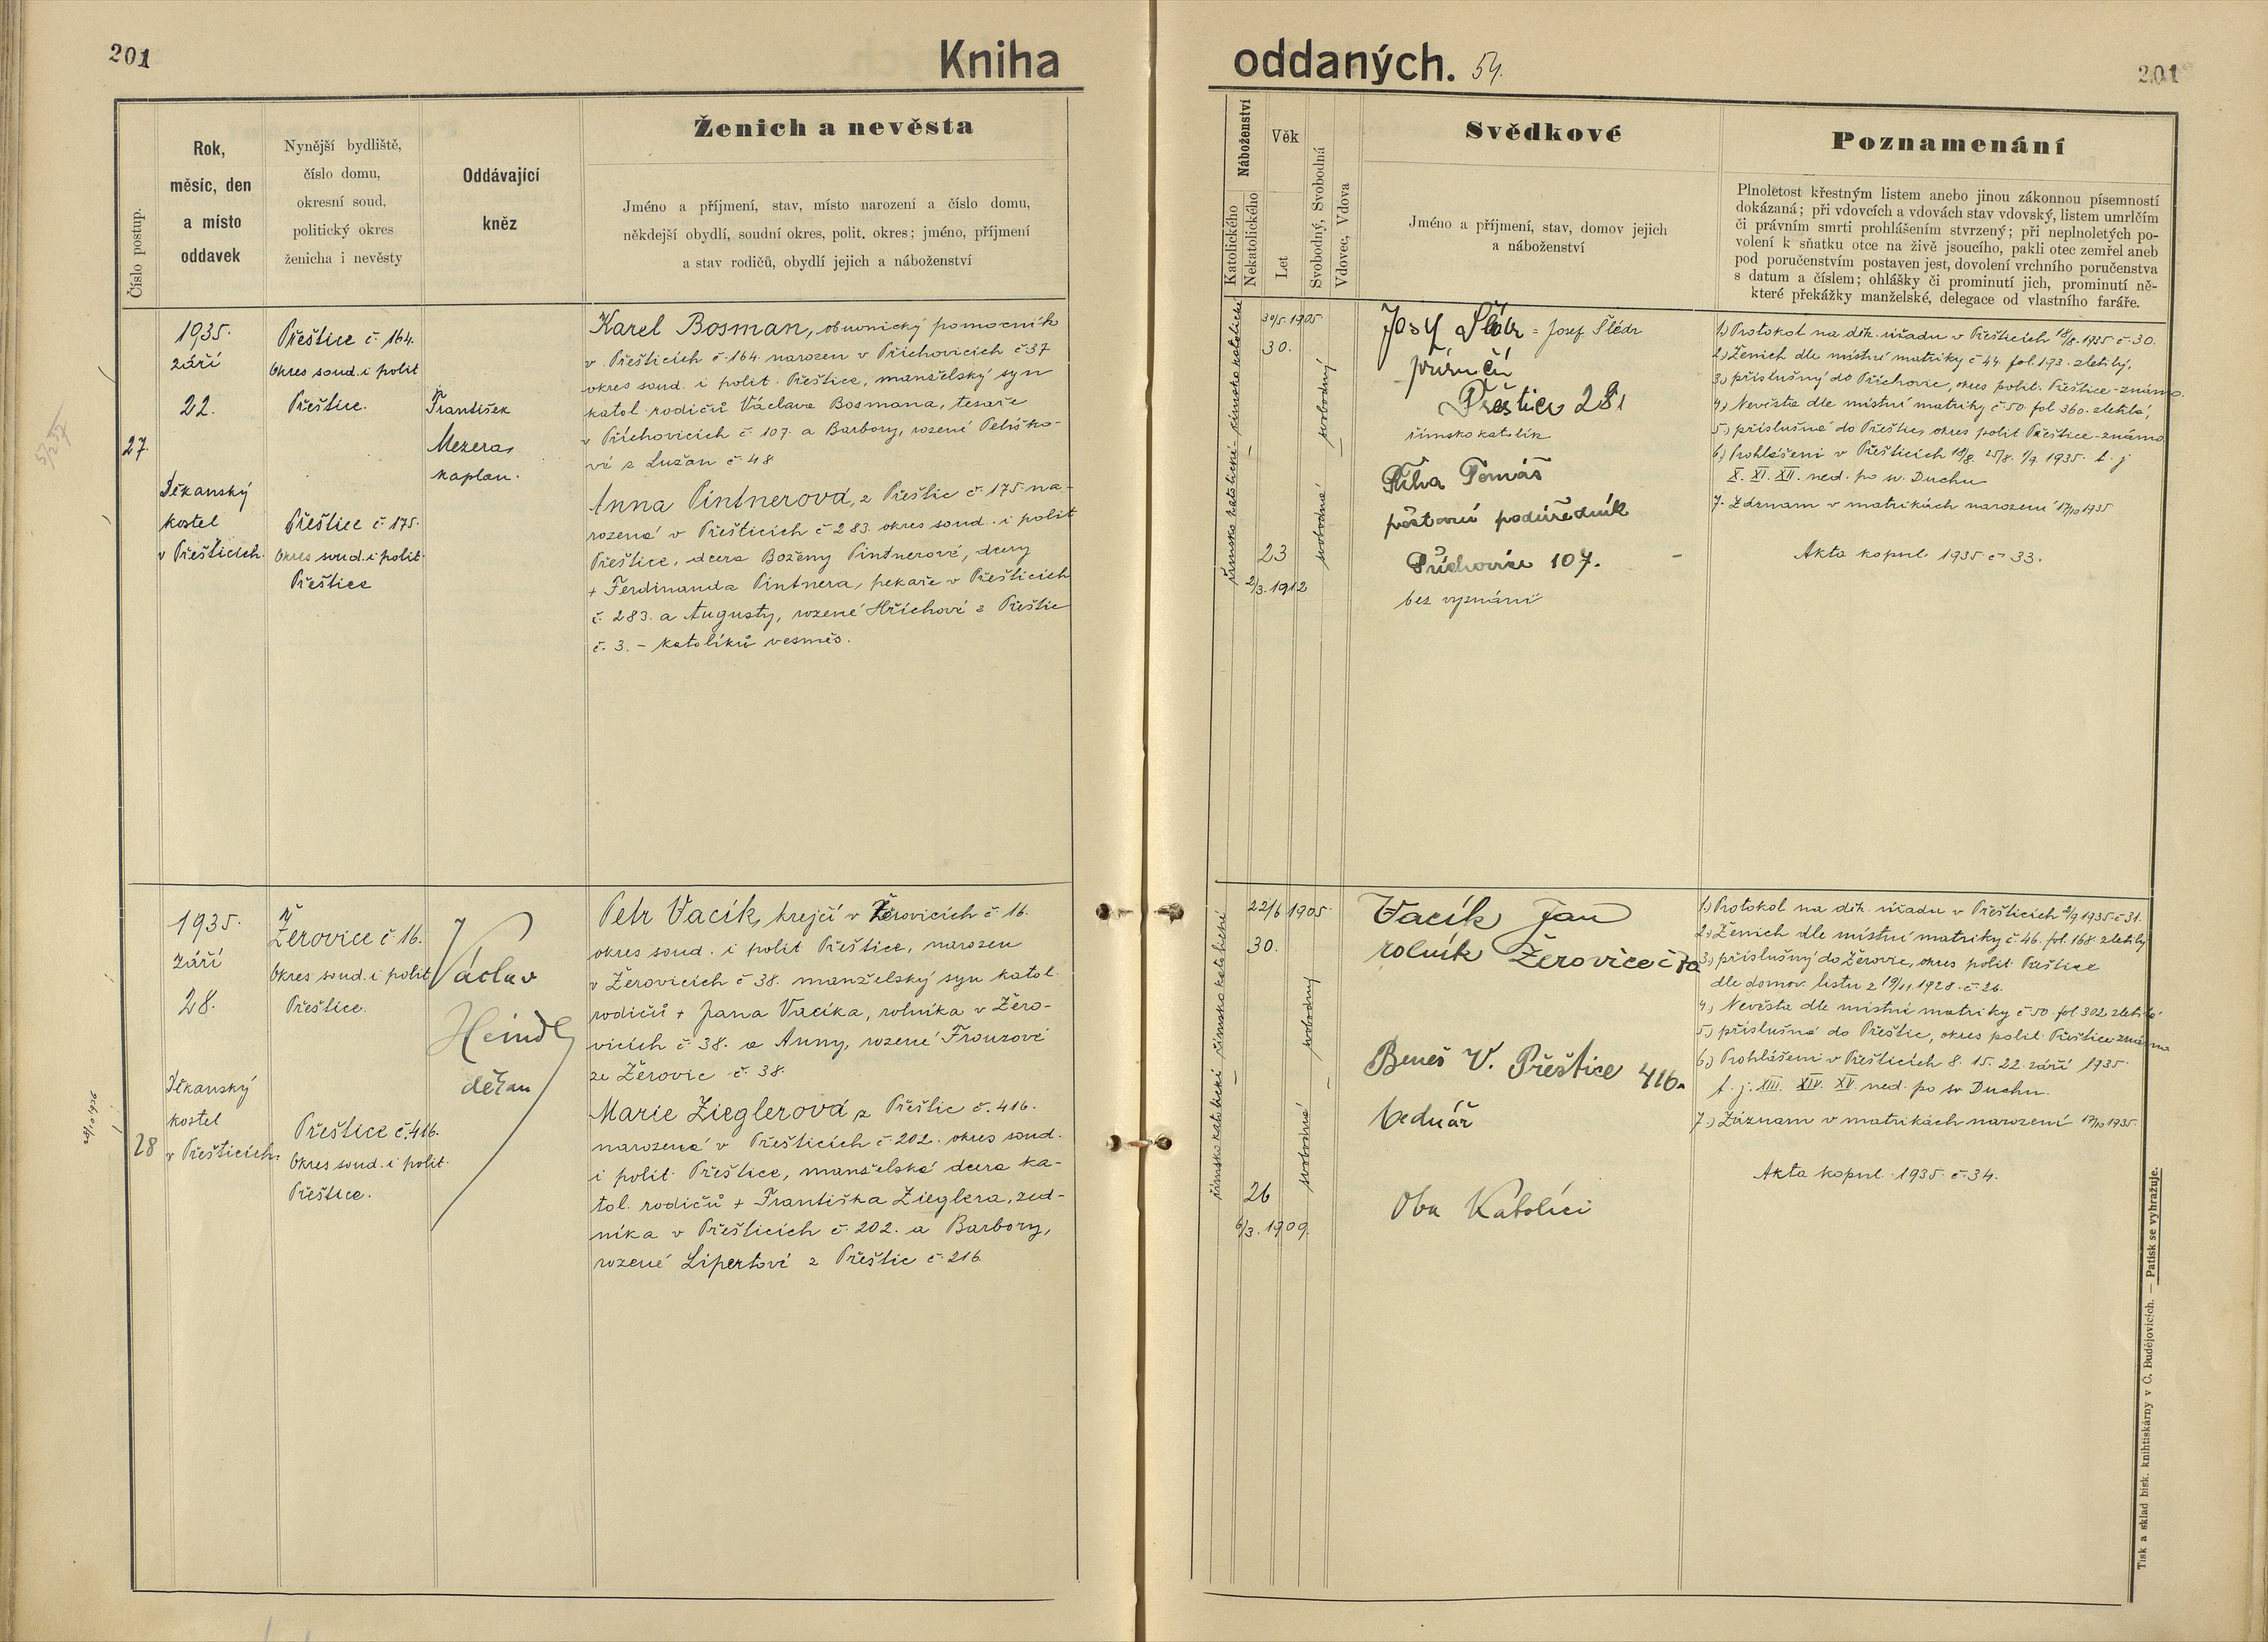 201
Kniha
oddaných. 54.
201
Číslo postup.
Rok,
měsíc, den
a místo
oddavek
Nynější bydliště,
číslo domu,
okresní soud,
politický okres
ženicha i nevěsty
Oddávající
kněz
Ženich a nevěsta
Jméno a příjmení, stav, místo narození a číslo domu,
někdejší obydlí, soudní okres, polit. okres; jméno, příjmení
a stav rodičů, obydlí jejich a náboženství
Náboženství
Katolického
Nekatolického
Věk
Let
Svobodný, Svobodná
Vdovec, Vdova
Svědkové
Jméno a příjmení, stav, domov jejich
a náboženství
Poznamenání
Plnoletost křestným listem anebo jinou zákonnou písemností
dokázaná; při vdovcích a vdovách stav vdovský, listem umrlčím
či právním smrti prohlášením stvrzený; při neplnoletých po-
volení k sňatku otce na živě jsoucího, pakli otec zemřel aneb
pod poručenstvím postaven jest, dovolení vrchního poručenstva
s datum a číslem; ohlášky či prominutí jich, prominutí ně-
které překážky manželské, delegace od vlastního faráře.
27.
1935.
září
22.
Děkanský
kostel
v Přešticích.
Přeštice č. 164.
Okres soud. i polit
Přeštice.
Přeštice č. 175.
Okres soud. i polit.
Přeštice
František
Mezera,
kaplan.
Karel Bosman, obuvnický pomocník
v Přešticích č. 164. narozen v Příchovicích č 37
okres soud. i polit. Přeštice, manželský syn
katol. rodičů Václava Bosmana, tesaře
v Příchovicích č. 107. a Barbory, rozené Peliško-
vé z Lužan č 48
Anna Pintnerová, z Přeštic č. 175. na-
rozená v Přešticích č 283. okres soud. i polit
Přeštice, dcera Boženy Pintnerové, dcery
+ Ferdinanda Pintnera, pekaře v Přešticích
č. 283. a Augusty, rozené Hříchové z Přeštic
č. 3. – katolíků vesměs.
římsko katolické – římsko katolické
30/5. 1905
30.
23
2/3. 1912
svobodný
svobodná
Josef Šlédr = Josef Šlédr
příručí
Přeštice 281
římsko katolík
Říha Tomáš
poštovní podúředník
Příchovice 107.
bez vyznání
1.) Protokol na děk. úřadu v Přešticích 18/8. 1935 č. 30.
2.) Ženich dle místní matriky č 44. fol. 193. zletilý,
3.) příslušný do Příchovic, okres polit. Přeštice – známo.
4.) Nevěsta dle místní matriky č. 50. fol. 360. zletilá,
5.) příslušná do Přeštic, okres polit Přeštice – známo
6.) Prohlášeni v Přešticích 18/8. 25/8. 1/9. 1935. t. j
X. XI. XII. ned. po sv. Duchu
7. Záznam v matrikách narození 17/10 1935
Akta kopul. 1935 č 33.
28
1935.
září
28.
Děkanský
kostel
v Přešticích.
Žerovice č. 16.
Okres soud. i polit
Přeštice.
Přeštice č. 416.
Okres soud. i polit.
Přeštice.
Václav
Heindl
děkan
Petr Vacík, krejčí v Žerovicích č. 16.
okres soud. i polit Přeštice, narozen
v Žerovicích č 38. manželský syn katol.
rodičů + Jana Vacíka, rolníka v Žero-
vicích č 38. a Anny, rozené Frouzové
ze Žerovic č. 38.
Marie Zieglerová z Přeštic č. 416.
narozená v Přešticích č 202. okres soud.
i polit. Přeštice, manželská dcera ka-
tol. rodičů + Františka Zieglera, zed-
níka v Přešticích č. 202. a Barbory,
rozené Lipertové z Přeštic č. 216
římsko katolické – římsko katolické
22/6 1905.
30.
26
6/3. 1909.
svobodný
svobodná
Vacík Jan
rolník Žerovice č
Beneš V. Přeštice 416.
bednář
Oba Katolíci
1.) Protokol na děk. úřadu v Přešticích 2/9 1935 č 31.
2.) Ženich dle místní matriky č. 46. fol. 168. zletilý
3.) příslušný do Žerovic, okres polit. Přeštice
dle domov. listu z 19/11. 1928. č. 26.
4.) Nevěsta dle místní matriky č 50. fol 302 zletilá
5.) příslušná do Přeštic, okres polit. Přeštice známa
6.) Prohlášeni v Přešticích 8. 15. 22. září 1935.
t. j. XIII. XIV. XV. ned. po sv Duchu.
7.) Záznam v matrikách narození 17/10 1935.
Akta kopul. 1935. č. 34.
Tisk a sklad bisk. knihtiskárny v Č. Budějovicích. — Patisk se vyhražuje.